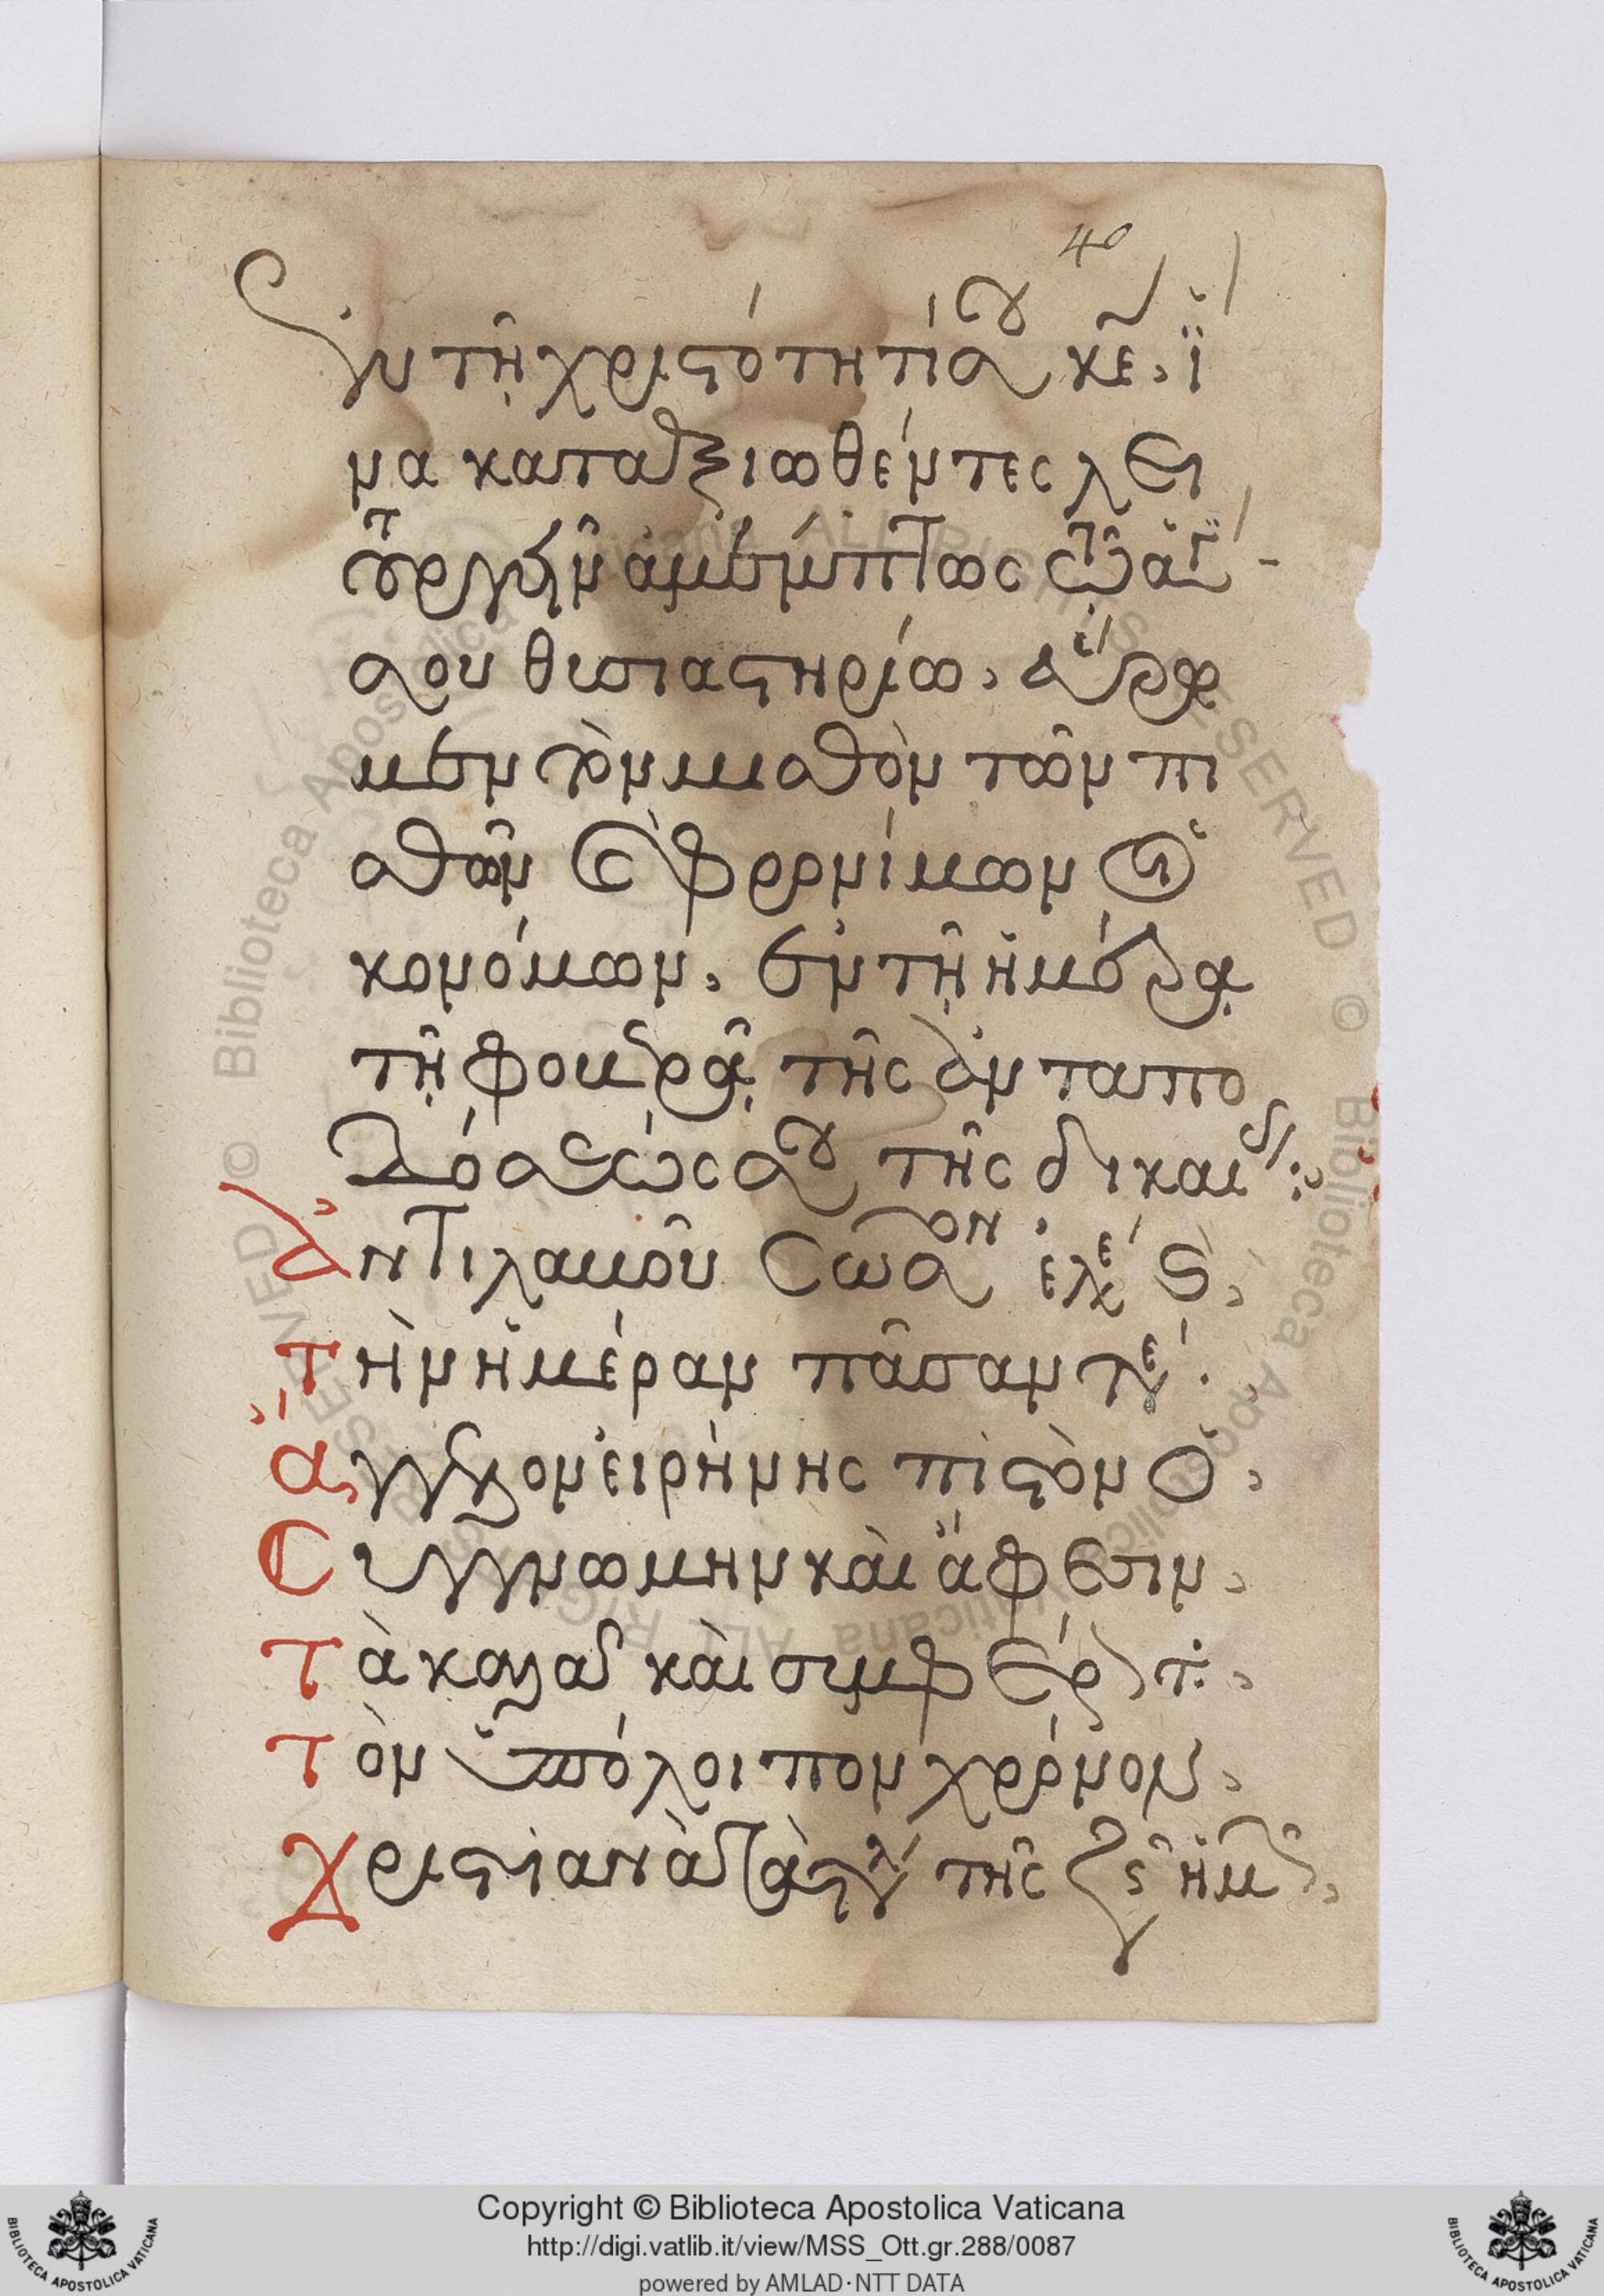 40
ἐν τῇ χριστότητί σου κε, ἵ
να καταξιωθέντες λει
τουργεῖν ἀμέμπτως τῷ ἁγίω
σου θυσιαστηρίω, εὕρω
μεν τὸν μισθὸν τῶν πι
στῶν καὶ φρονίμων οἰ
κονόμων, ἐν τῇ ἡμέρα
τῇ φοβερᾷ τῆς ἀνταπο
δόσεώς σου τῆς δικαί
Ἀντιλαβοῦ σῶσον ἐλέ
τὴν ἡμέραν πᾶσαν τε
ἄγγελον εἰρήνης πιστὸν ὁ
Συγγνώμην καὶ ἄφεσιν
τὰ καλὰ καὶ συμφέροντ
τὸν ὑπόλοιπον χρόνον
χριστιανὰ τὰ τέλη τῆς ζω ἡμ
Copyright © Biblioteca Apostolica Vaticana
http://digi.vatlib.it/view/MSS_Ott.gr.288/0087
powered by AMLAD·NTT DATA
BIBLIOTECA APOSTOLICA VATICANA
BIBLIOTECA APOSTOLICA VATICANA